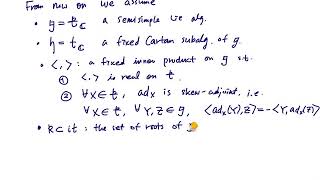 From now on we assume
• 𝔤 = 𝔱_ℂ a semisimple Lie alg.
• 𝔥 = 𝔱_ℂ a fixed Cartan subalg. of 𝔤.
• <,> : a fixed inner product on 𝔤 s.t.
① <,> is real on 𝔱.
② ∀X∈𝔱, ad_X is skew-adjoint, i.e.
∀X∈𝔱, ∀Y,Z∈𝔤, <ad_X(Y),Z> = -<Y,ad_X(Z)>
• R⊂i𝔱 : the set of roots of